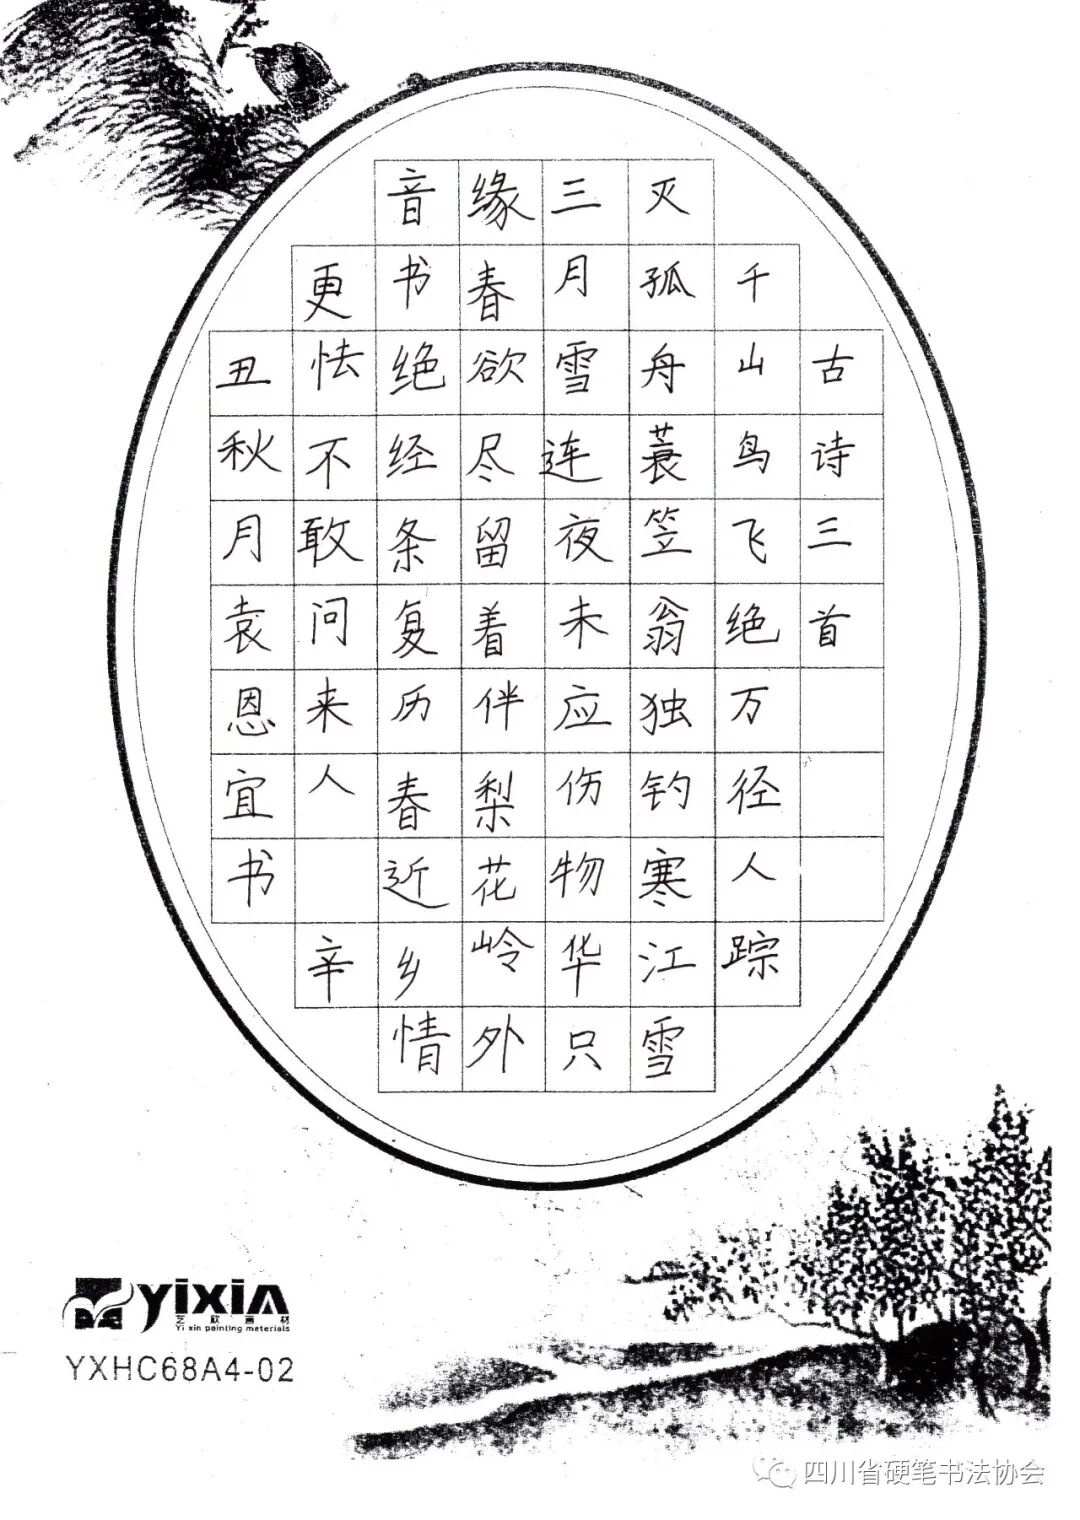 古诗三首
千山鸟飞绝万径人踪
灭孤舟蓑笠翁独钓寒江雪
三月雪连夜未应伤物华只
缘春欲尽留着伴梨花岭外
音书绝经条复历春近乡情
更怯不敢问来人 辛
丑秋月袁恩宜书
yixin
艺欣画材
Yi xin painting materials
YXHC68A4-02
四川省硬笔书法协会